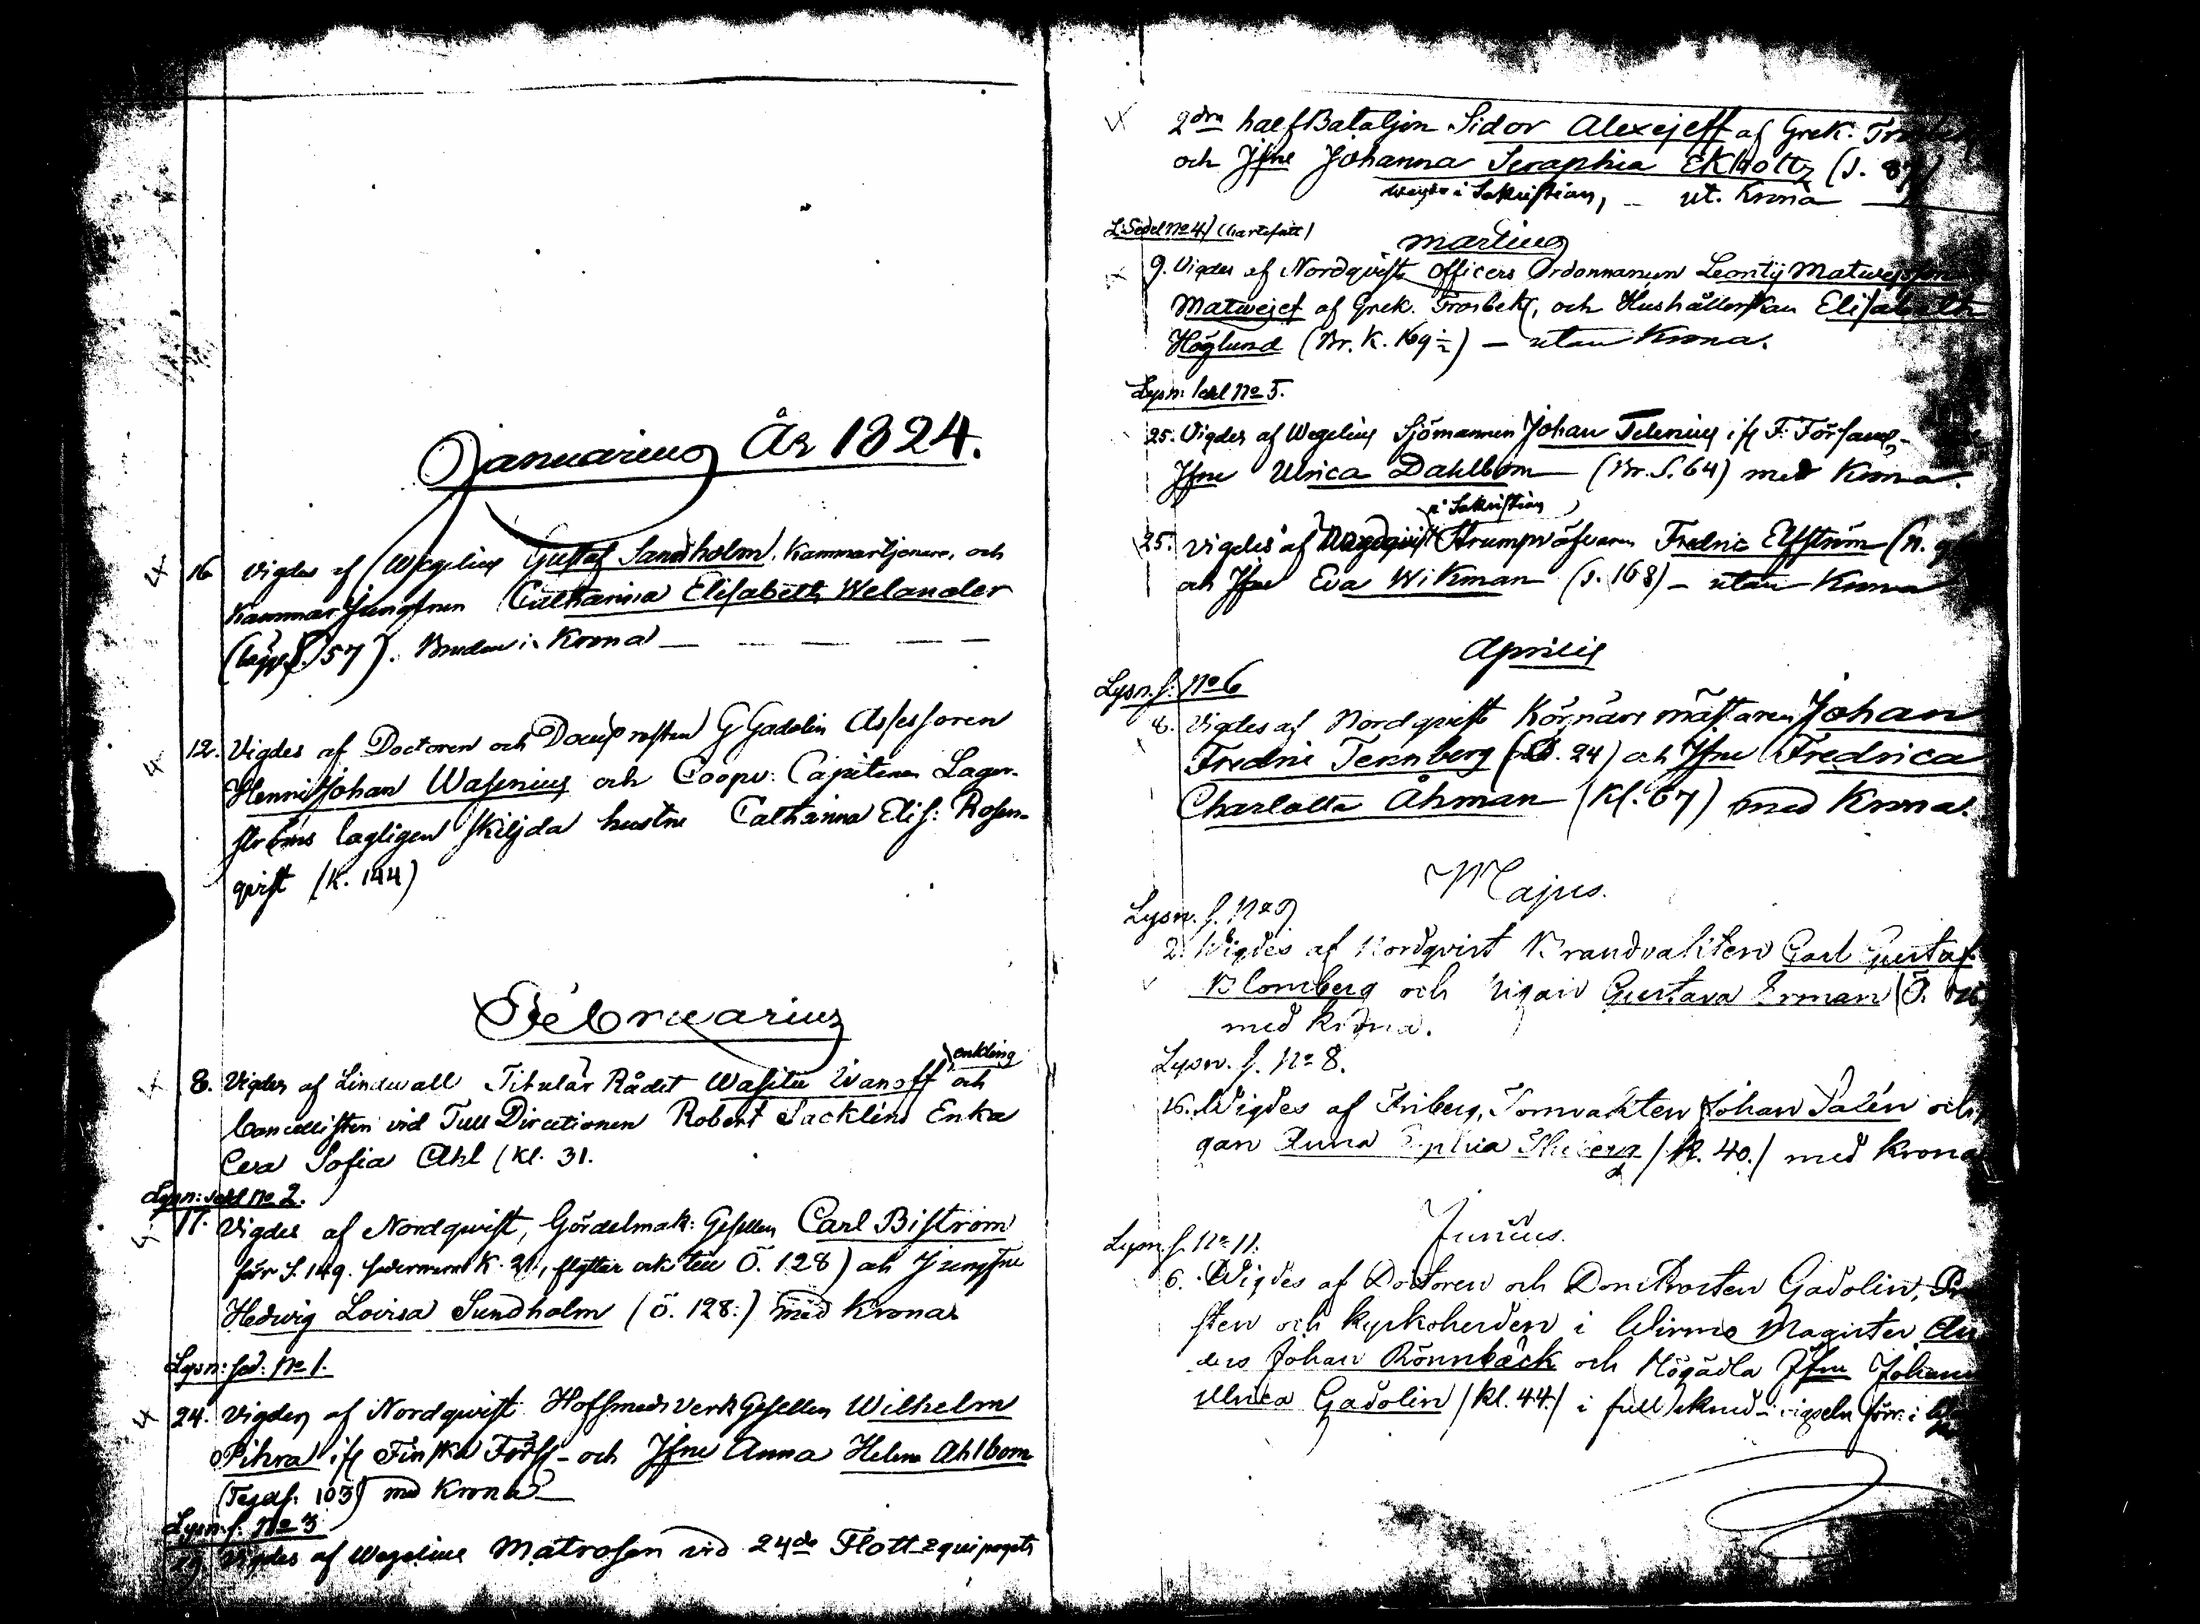 Januarius År 1824.
16 Vigdes af Wegelius Gustaf Sandholm, Kammartjenare, och
Kammarjungfrun Catharina Elisabeth Welander
57). Bruden i Krona
12. Vigdes af Doctoren och Domprosten G Gadolin Assessoren
Henric Johan Wasenius och Coopv: Capitenen Lager-
ströms lagligen skiljda hustru Catharina Elis: Rosen-
qvist (K. 144)
Februarius
enkling
8. Vigdes af Lindwall Titulär Rådet Wasilii Ivanoff och
Cancellisten vid Tull Directionen Robert Sacklins Enka
Eva Sofia Ahl (Kl. 31.
Lysn: sedel No 2.
17. Vigdes af Nordqvist, Gördelmak: Gesellen Carl Biström
förr S. 149. K. 21, flyttar ock till Ö. 128) och Jungfru
Hedwig Lovisa Sundholm (Ö. 128:) med Krona
Lysn: sed: No 1.
24. Vigdes af Nordqvist Hofsmeds verkGesellen Wilhelm
Pihra Finska Förs. och Jfru Anna Helena Ahlbom
103) med Krona
Lysn. s. No 3
29. Vigdes af Wegelius Matrosen vid 24de Flott-Equipagets
2dra halfBataljon Sidor Alexejeff af Grek.
och Jfru Johanna Seraphia Ekholtz (S. 87)
i Sakristian, ut. Krona
L. Sedel No 4
Martius
9. Vigdes af Nordqvist Officers Ordonnansen Leontij
Matwejef af Grek. Trosbek, och Hushållerskan Elisabeth
Höglund (Br. K. 169 ½) – utan Krona.
Lysn: sedel No 5.
25. Vigdes af Wegelius Sjömannen Johan Telenius F. Församl,
Jfru Ulrica Dahlbom (Br. S. 64) med Krona.
i Sakristian
25. Vigdes af Nordqvist Strumpväfvaren Fredric Elfström
och Jfru Eva Wikman (S. 168) – utan Krona
Aprilis
Lysn. s: No 6
8. Vigdes af Nordqvist Körnärsmästaren Johan
Fredric Tennberg 24) och Jfru Fredrica
Charlotta Åhman (Kl. 67) med Krona.
Majus.
Lysn. s. No
2. Wigdes af Nordqvist Brandvakten Carl Gustaf
Blomberg och Pigan Gustava Erman (Ö.
med Krona.
Lysn. s. No 8.
16. Wigdes af Friberg, Tornvakten Johan Salén och
gan Anna Sophia / K. 40./ med krona
Junius.
Lysn. s. No 11.
6. Wigdes af Doctoren och DomProsten Gadolin, Pro
sten och Kyrkoherden i Wirmo Magister An
ders Johan Rönnbäck och Högädla Jfru Johana
Ulrica Gadolin / Kl. 44./ i full skrud